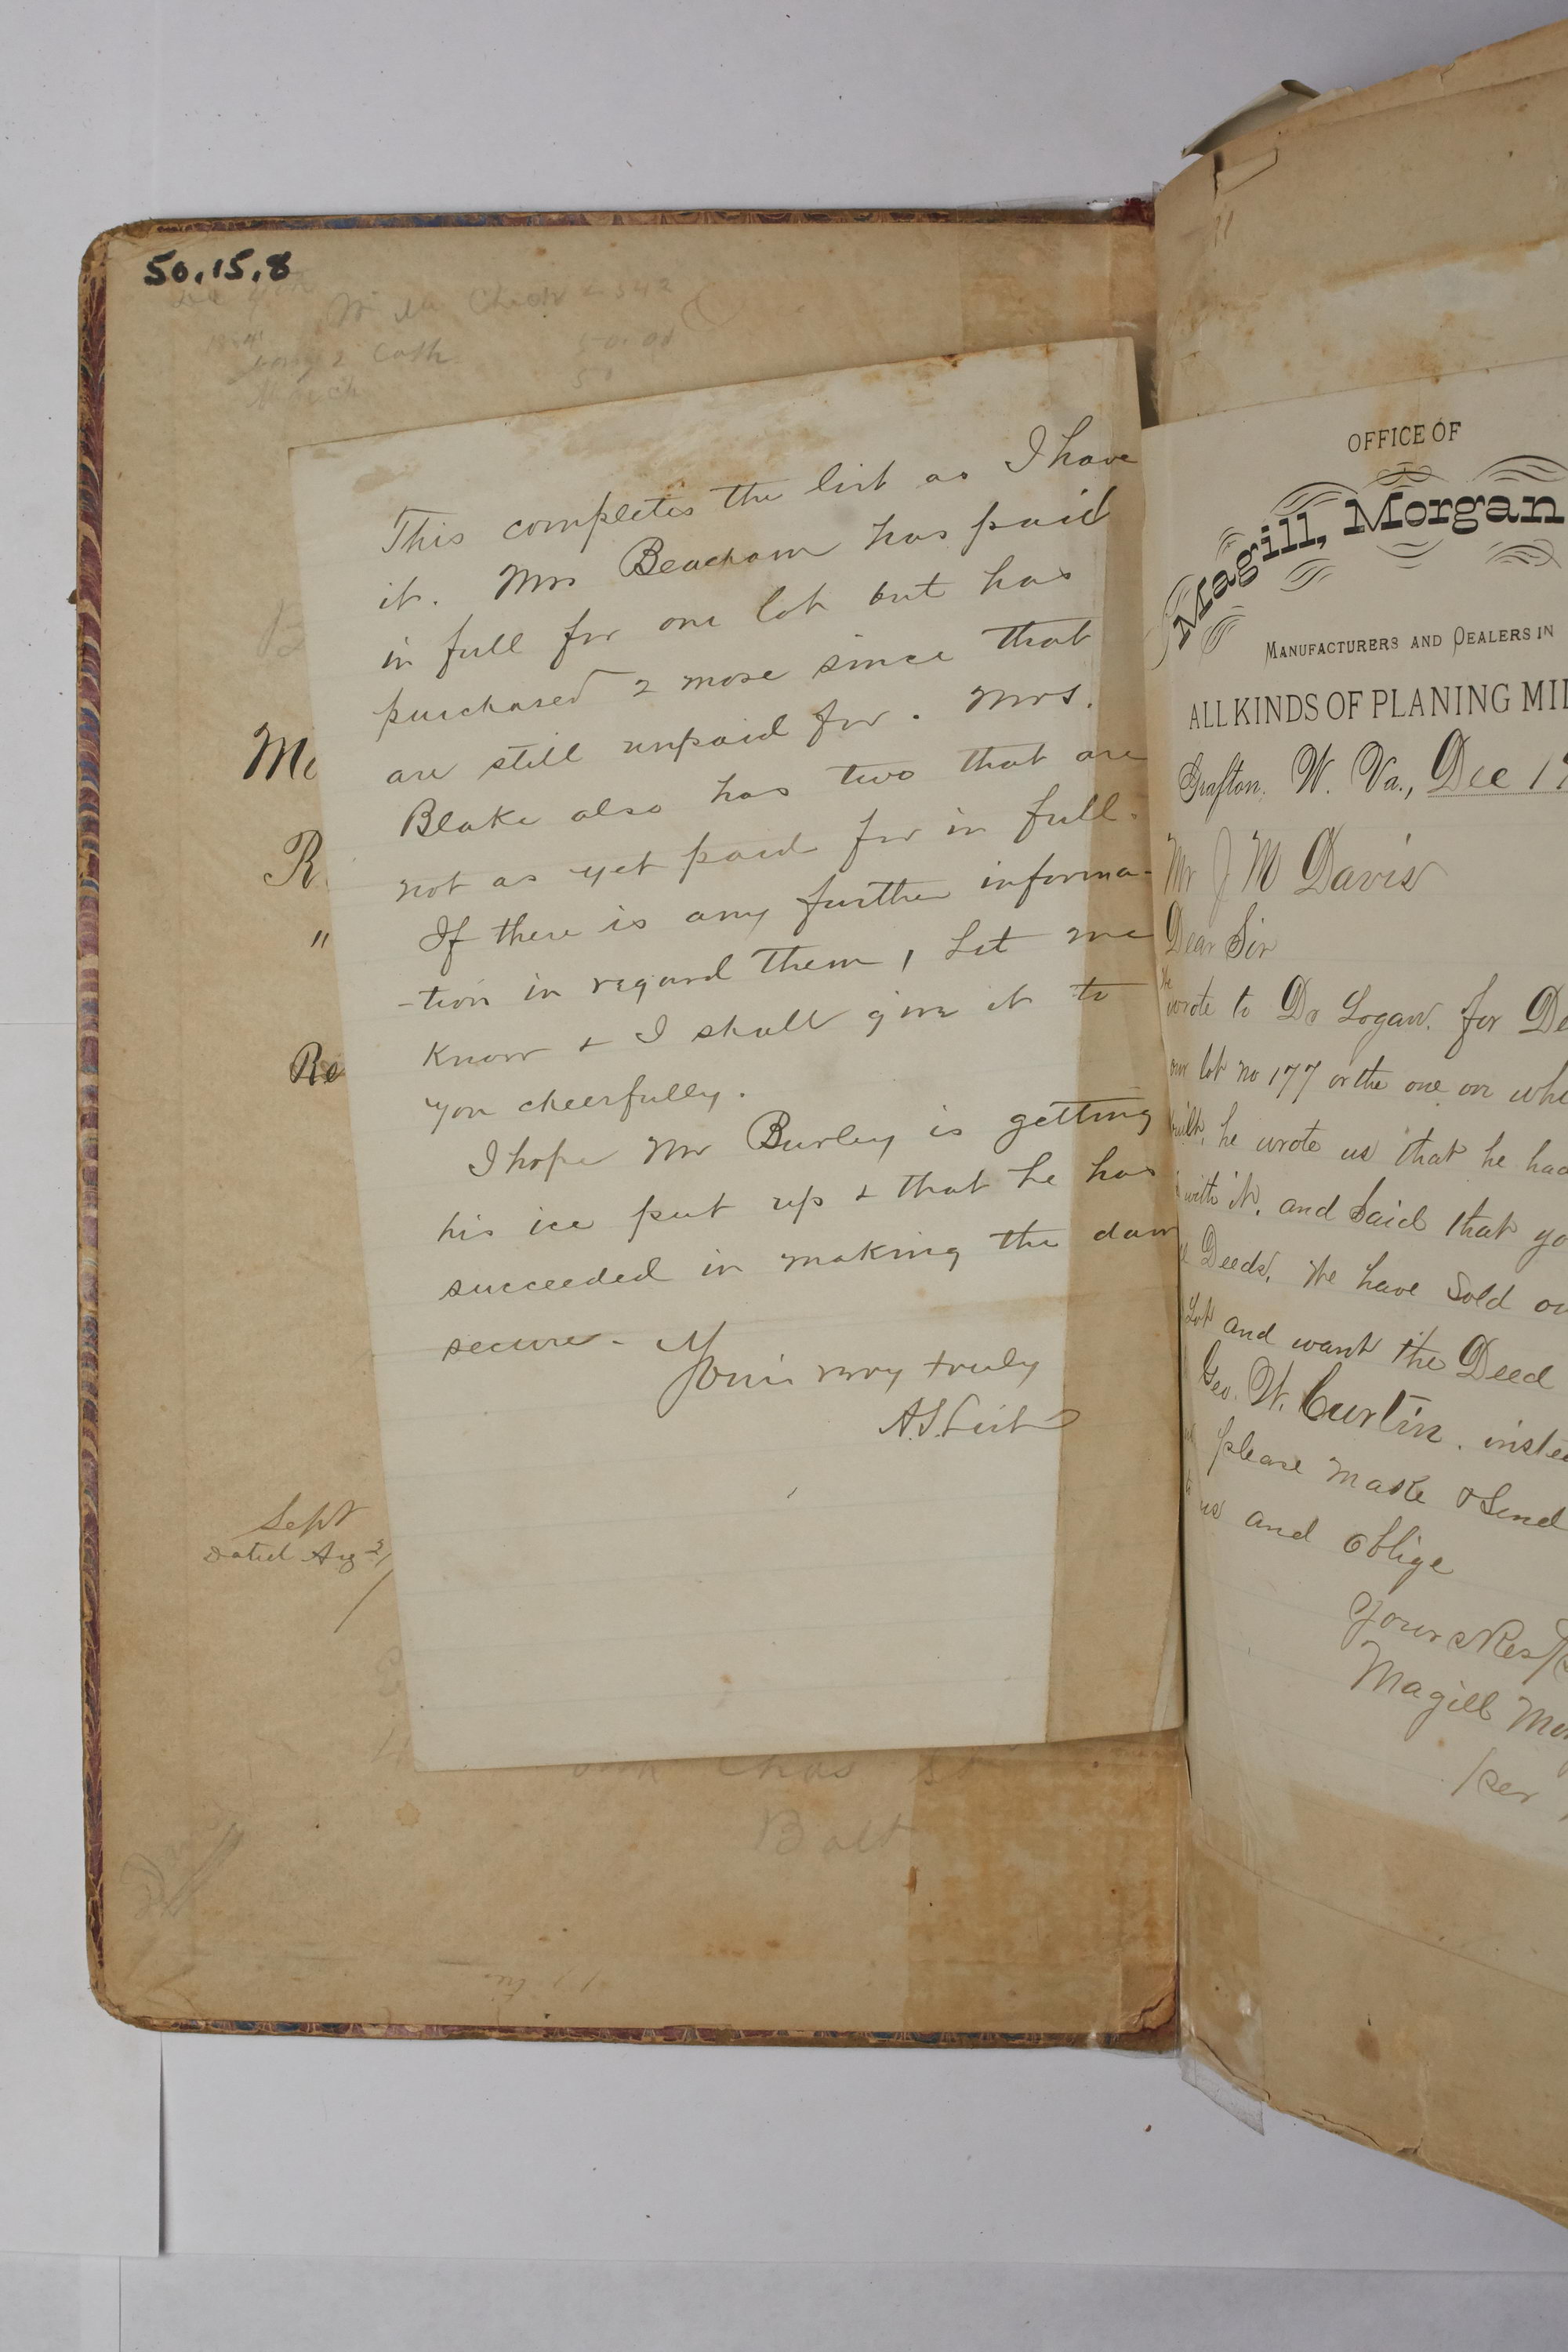 50.15.8
Check 542
50.00
Cash
March
Mc
R.
"
Re
Sept
Dated Aug 21
This completes the list as I have
it. Mrs Beacham has paid
in full for one lot but has
purchased 2 more since that
are still unpaid for. Mrs.
Blake also has two that are
not as yet paid for in full.
If there is any further informa-
-tion in regard them, Let me
know & I shall give it to
you cheerfully.
I hope Mr Burley is getting
his ice put up & that he has
succeeded in making the dam
secure. 
Yours very truly
A.S.
Chas St
Balt
OFFICE OF
Magill, Morgan
MANUFACTURERS AND DEALERS IN
ALL KINDS OF PLANING MIL
Grafton, W. Va., Dec 1
Mr J M Davis
Dear Sir
We
wrote to Dr Logan. for De
our lot no 177 or the one on whi
built, he wrote us that he had
with it. and Said that yo
Deeds. We have Sold ou
Lot and want the Deed
Geo. W. Curtin. inste
please make & Send
to us and oblige
Yours Resp
Magill Mor
per